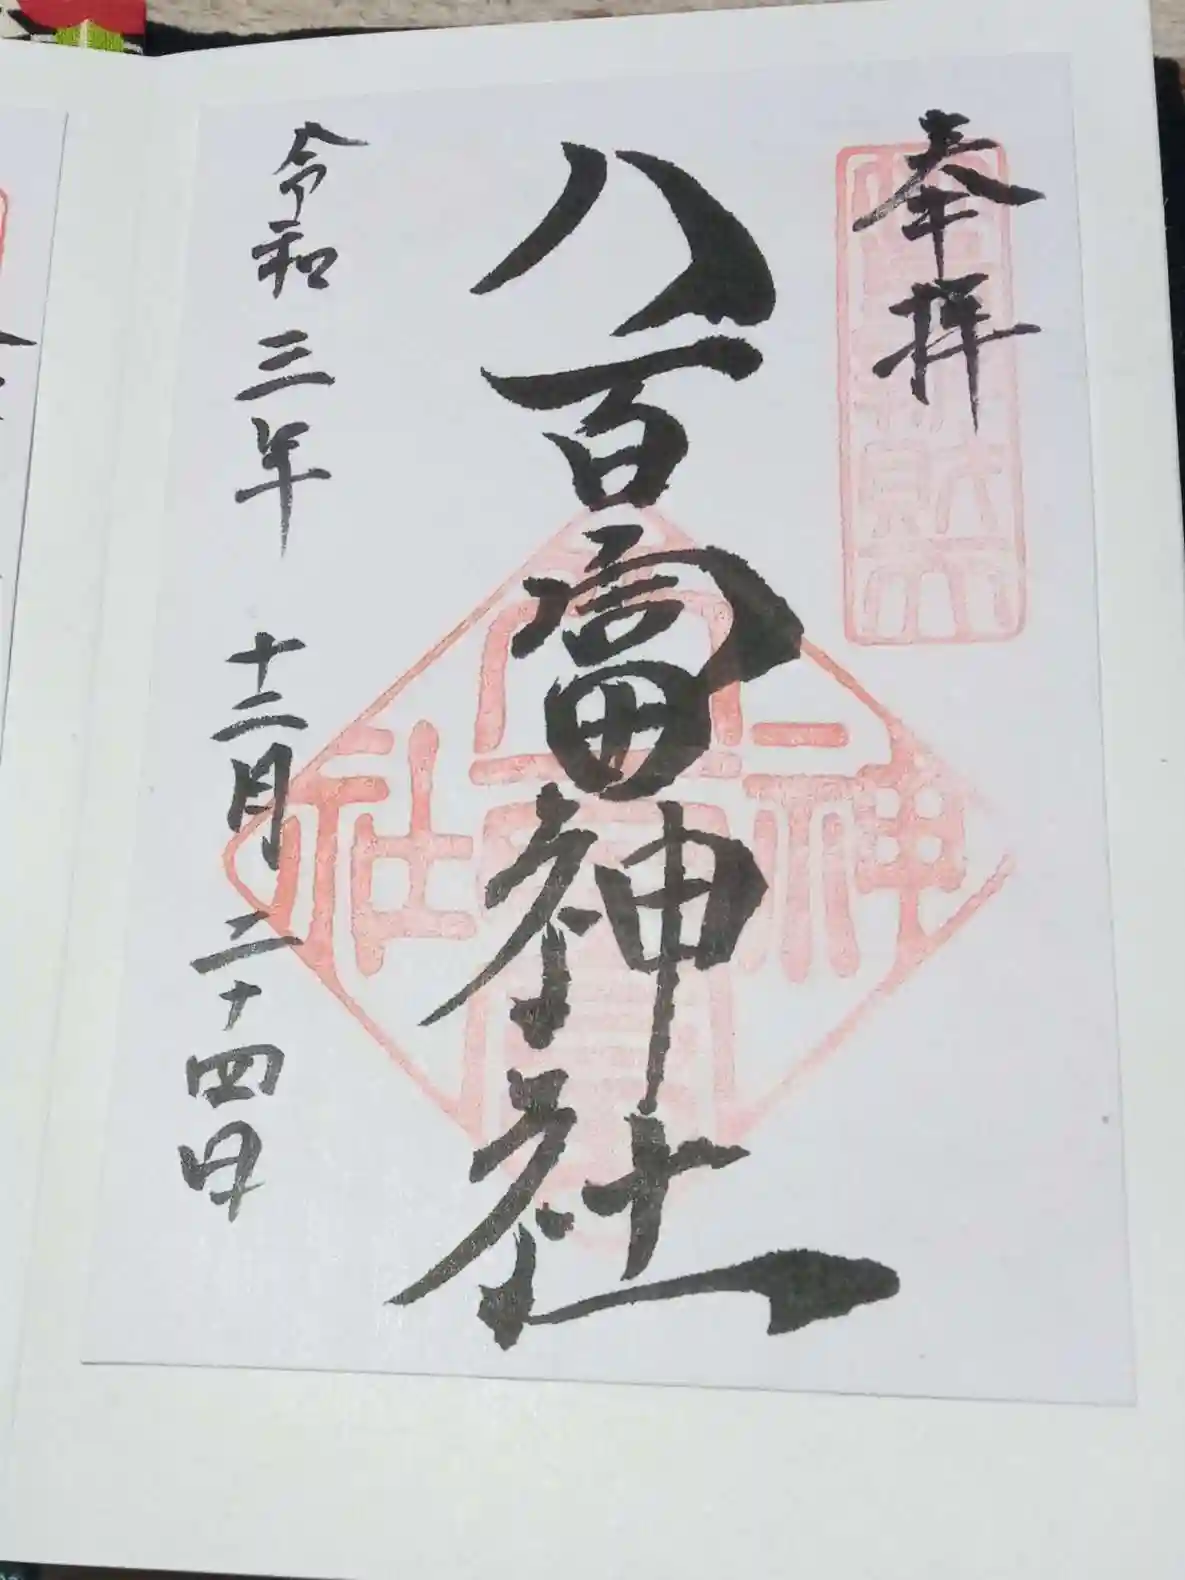 奉拝
八百富神社
令和三年 十二月二十四日
神
社